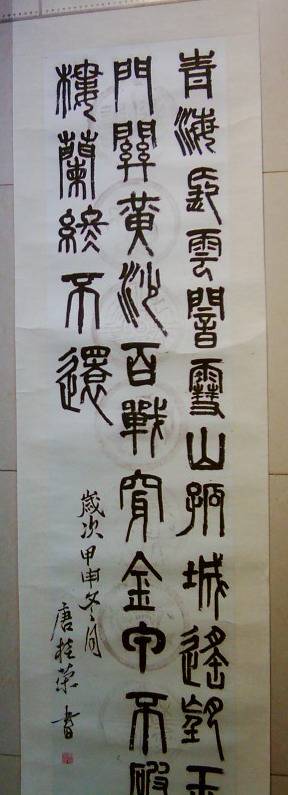 青海長雲闇雪山孤城遙望玉
門關黃沙百戰穿金甲不破
樓蘭終不還
歲次甲申冬月
唐桂荣書